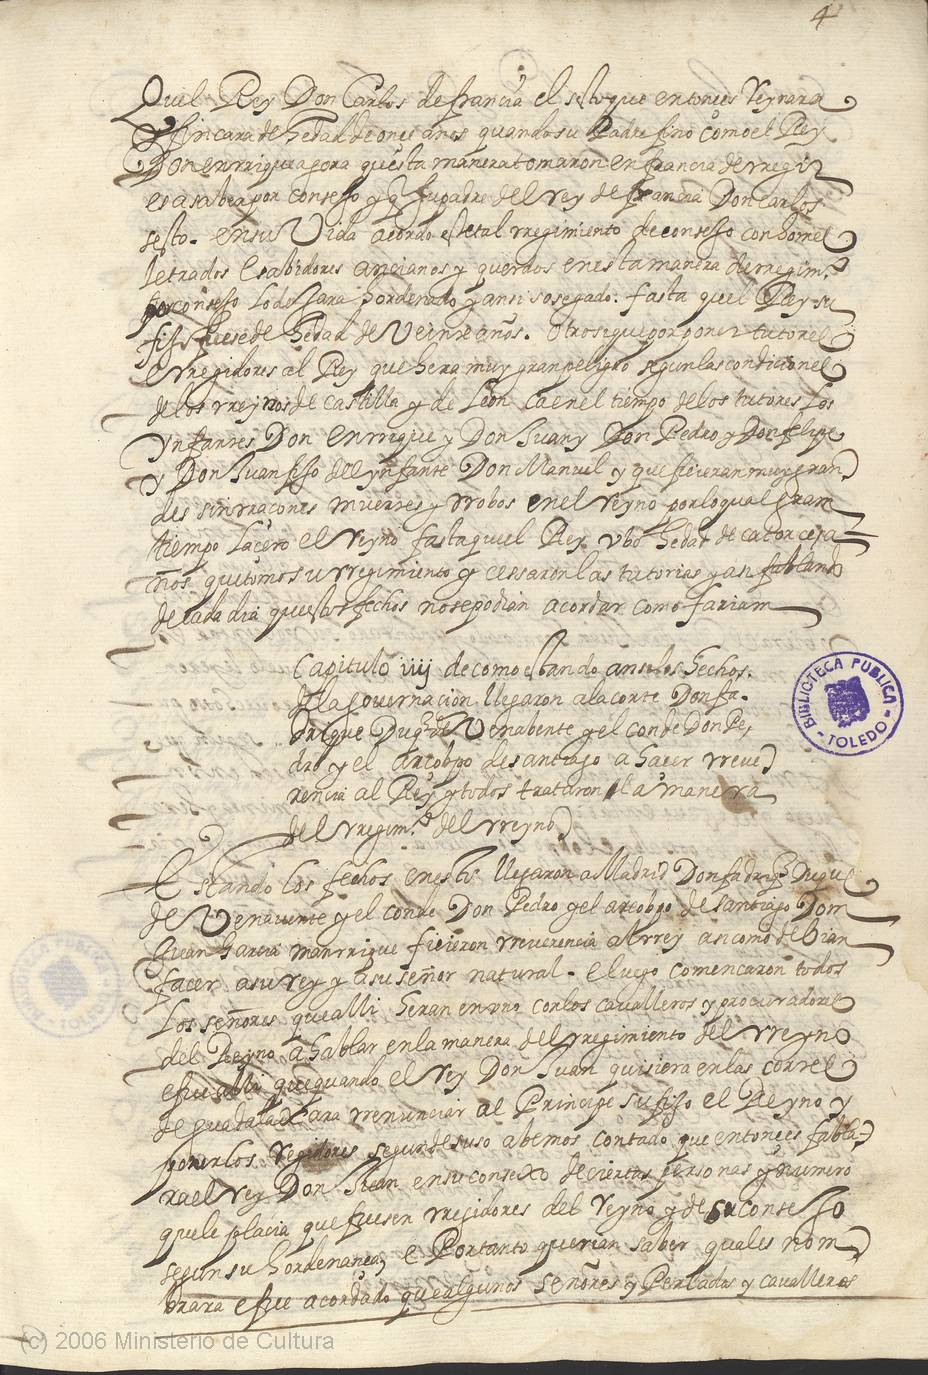 4
Quel Rey Don Carlos de francia el sesto que entonces Reynara
fincara de hedad de onçe años quando su Padre fino como el Rey
Don enrrique agora questa manera tomaron en francia de rregir
es a saber por consejo y q su padre del rey de francia Don Carlos
sesto. en su Vida acordo este tal rregimiento de consejo con homes
letrados E sabidores ancianos y querdos en esta manera de rregim.to
por consejo lo dejara hordenado y ansi sosegado. fasta quel Rey su
fijo fuese de hedad de Veinte años. Otrosi que por poner tutores
E rregidores al Rey que hera muy gran peligro segun las condiciones
de los rreynos de castilla y de León ca en el tiempo de los tutores los
ynfantes Don enrrique y Don Juan y Don Pedro y Don felipe
y Don Juan fijo del ynfante Don Manuel y que ficieran muy gran
des sinrraçones muertes y rrobos en el Reyno por lo qual gram
tiempo laçero el Reyno fasta quel Rey vbo hedad de catorçe a
ños que tomo su rregimiento y cessaron las tutorias y asi fablando
de cada dia questos fechos no se podian acordar como fariam
Capitulo iiij de como estando ansi los hechos.
de la governaçion llegaron a la corte Don fa.
drique Duq de Venabente y el conde Don Pe,
dro y el arcobpo de santiago a hacer rreve
rencia al Rey y todos trataron la manera
del rregim.to del rreyno
Estando los fechos en esto llegaron a Madrid Don fadriq Duque
de Venavente y el conde Don Pedro y el arcobpo de santiago Dom
Juan Garcia manrrique ficieron rreverencia al rrey asi como debian
facer a su rey y a su señor natural. E luego comencaron todos
Los señores que alli heran en vno con los cavalleros y procuradores
del Reyno a hablar en la manera del rregimiento del rreyno
e fue alli que quando el Rey Don Juan quisiera en las cortes
de guadalaxara rrenunciar al Prinçipe su fijo el Reyno y
ponerlos Regidores segun de suso abemos contado que entonces fabla
ra el rey Don Juan en su consexo de ciertas personas y numero
que le placia que fuesen rregidores del Reyno y de su consejo
segun su hordenança, E Por tanto querian saber quales nom
brara e fue acordado que algunos señores y Perlados y cavalleros
BIBLIOTECA PUBLICA
- TOLEDO -
(c) 2006 Ministerio de Cultura